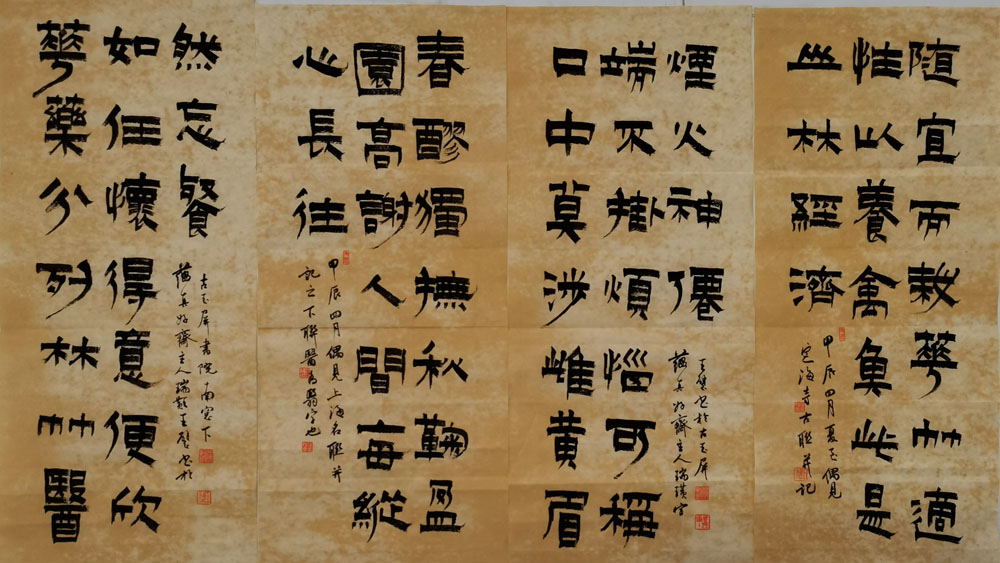 隨宜而栽華竹適
性以養禽魚此是
山林經濟
甲辰四月夏至偶見
定海寺古聯并記
口中莫涉雌黃眉
端不掛煩惱可稱
煙火神僊
蘊真好齋主人瑞璜字
王壁書於古玉屏
春醪獨撫秋鞠盈
園高謝人間每縱
心長往
甲辰四月偶見上海名聯并
記之下聯醫為翳字也
華藥分列林竹醫
如任懷得意便欣
然忘餐
蘊真好齋主人瑞璜王壁書於
古玉屏書院南窗下